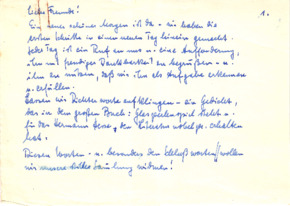 Liebe Freunde! 1.
Ein neuer schöner Morgen ist da - wir haben die
ersten Schritte in einen neuen Tag hinein gemacht.
Jeder Tag ist ein Ruf an uns u. eine Aufforderung,
ihn mit freudiger Dankbarkeit zu begrüßen - u.
ihn zu nützen, daß wir ihn als Aufgabe erkennen
u. erfüllen.
Lassen wir Dichterworte aufklingen - ein Gedicht,
das in dem großen Buch: Glasperlenspiel steht - u.
für das Hermann Hesse, den Literaturnobelpr. erhalten
hat.
Diesen Worten - u. besonders den Schlußworten wollen
wir unsere Sammlung widmen!